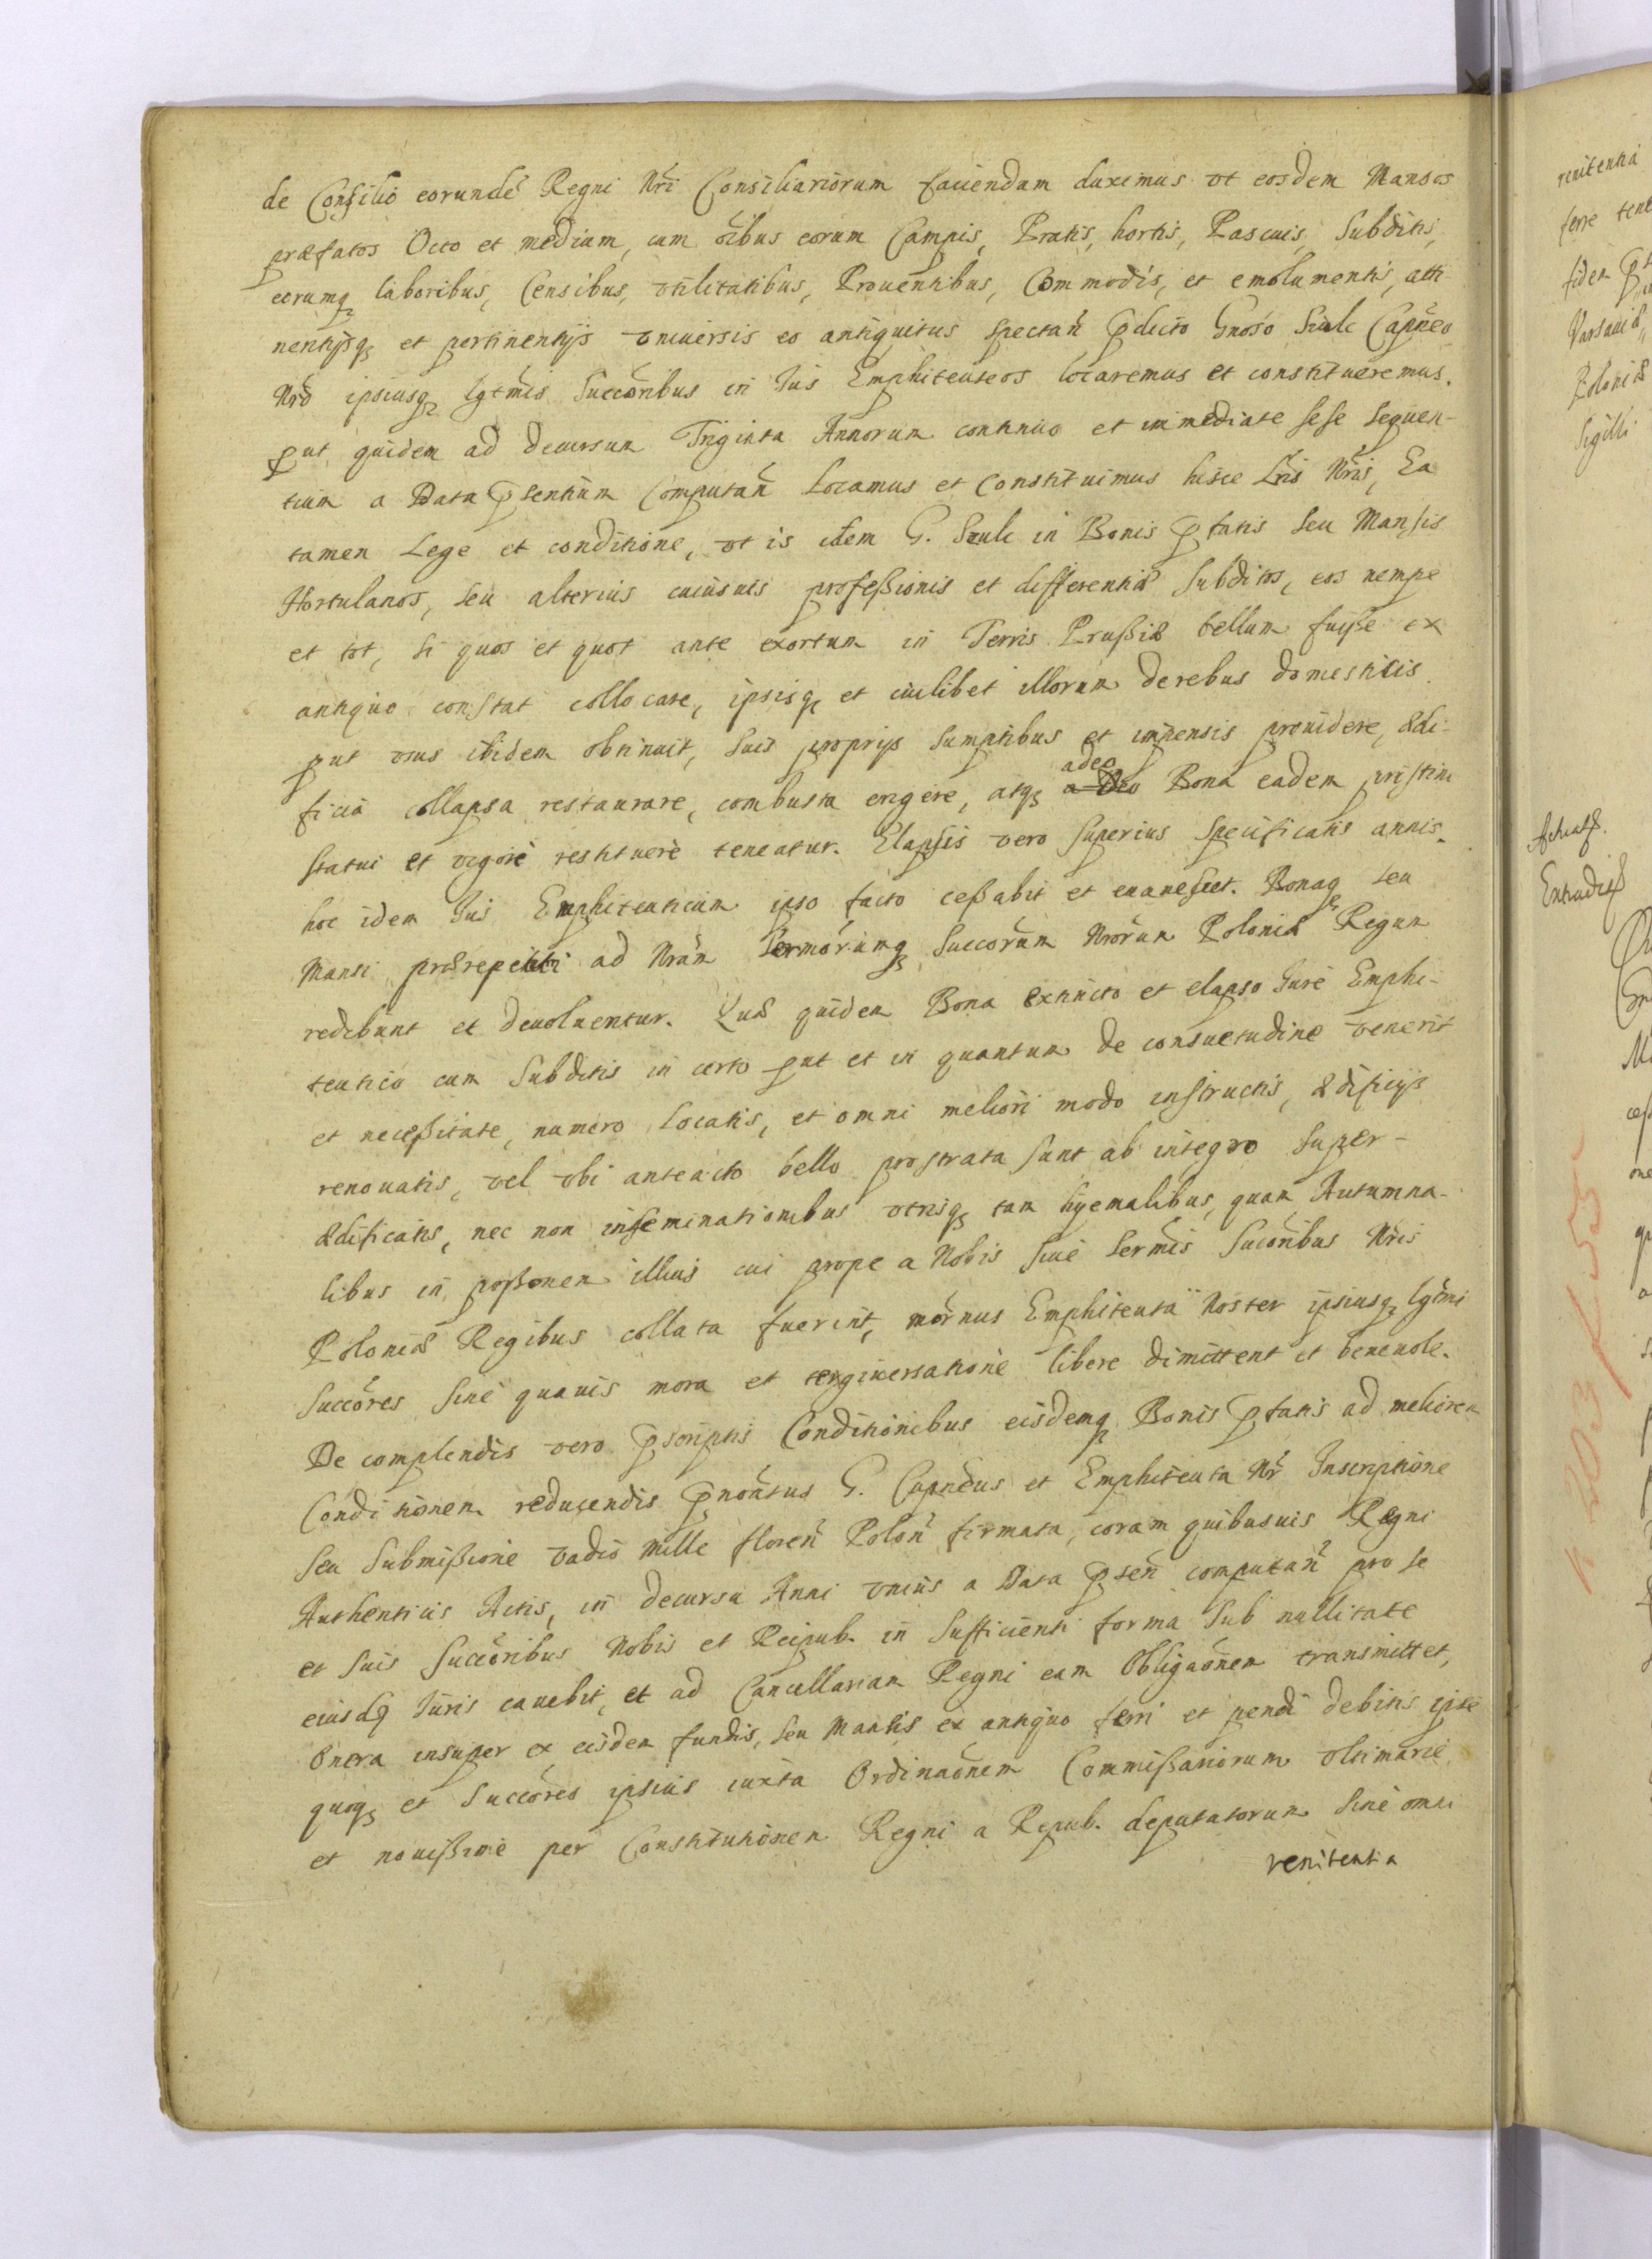 de Consilio eorundē Regni Nri Consiliariorum faciendam duximus vt eosdem Mansos
præfatos Octo et mediam, cum oībus eorum Campis, Pratis, hortis, Pascuis, Subditis,
eorumq; laboribus, Censibus, vtilitatibus, Prouentibus, Commodis, et emolumentis, atti
nentijsq; et pertinentijs vniuersis eo antiquitus spectan̄ p̄dicto Gnoso Szulc Capneo
Nrō ipsiusq; lgtmis Succōribus in Jus Emphiteuseos locaremus et constitueremus.
put quidem ad decursum Triginta Annorum continuo et immediate sese sequen-
tium a Data p̄sentium Computan̄ Locamus et Constituimus hisce Lris Nris, Ea
tamen Lege et conditione, vt is idem G. Szulc in Bonis p̄fatis seu Mansis
Hortulanos, seu alterius cuiusuis profeßionis et differentiæ subditos, eos nempe
et tot, si quos et quot ante exortum in Terris Prußiæ bellum fuiße ex
antiquo constat collocare, ipsisq; et cuilibet illorum derebus domesticis
put vsus ibidem obtinuit, suis proprijs sumptibus et impensis prouidere, ædi-
ficia collapsa restaurare, combusta erigere, atq; adeo Bona eadem pristini
statui et vigori restituere teneatur. Elapsis vero superius specificatis annis
hoc idem Jus Emphiteuticum ipso facto ceßabit et euanescet. Bonaq; seu
Mansi prærepetiti ad Nram Sermorumq; Succorum Nrorum Poloniæ Regum
redibunt et deuoluentur. Quæ quidem Bona extincto et elapso Jure Emphi-
teutico cum Subditis in certo put et in quantum de consuetudine venerit
et neceßitate, numero locatis, et omni meliori modo instructis, ædificijs
renouatis, vel vbi anteacto bello prostrata sunt ab integro super-
ædificatis, nec non inseminationibus vtrisq; tam hyemalibus, quam Autumna-
libus in poßonem illius cui prope a Nobis siue sermis succoribus Nris
Poloniæ Regibus collata fuerint, mornus Emphiteuta Noster ipsiusq; lgtmi
Succōres sine quauis mora et tergiuersatione libere dimittent et beneuole.
De complendis vero p̄scriptis Conditionibus eisdemq; Bonis p̄fatis ad meliorem
Conditionem reducendis p̄nontus G. Capneus et Emphiteuta Nr Inscriptione
seu Submißione vadio mille floren̄ Polon̄ firmata, coram quibusuis Regni
Authenticis Actis, in decursu Anni vnius a Data p̄sen̄ computan̄ pro se
et suis succōribus Nobis et Reipub. in sufficienti forma sub nullitate
eiusdq; Juris cauebit, et ad Cancellariam Regni eam Obligaōnem transmittet,
Onera insuper ex eisdem fundis, seu Mansis ex antiquo ferri et pendi debitis ipse
quoq; et Succōres ipsius iuxta Ordinaōnem Commißariorum vltimarie
et nouißime per Constitutionem Regni a Repub. deputatorum sine omni
renitentia